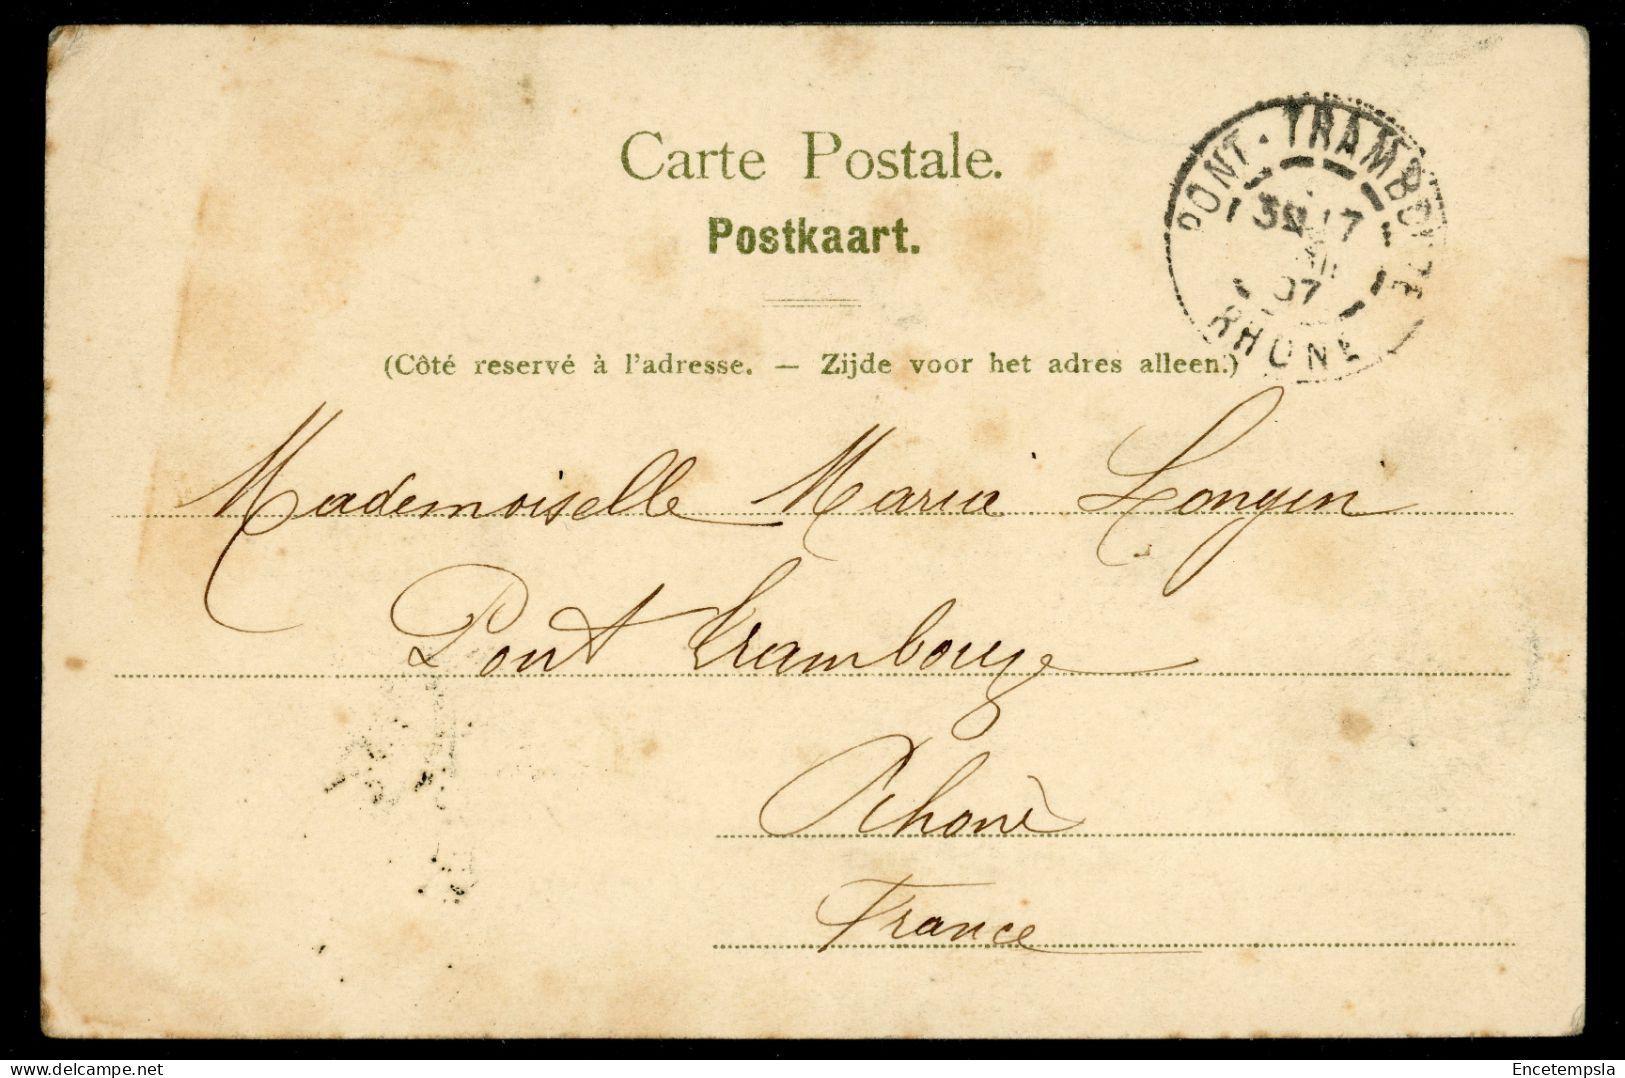 Carte Postale.
Postkaart.
(Côté reservé à l'adresse. — Zijde voor het adres alleen.)
PONT-TRAMBOUZE
17
07
RHONE
Mademoiselle Maria Longin
Pont Trambouze
Rhône
France
www.delcampe.net
Encetempsla